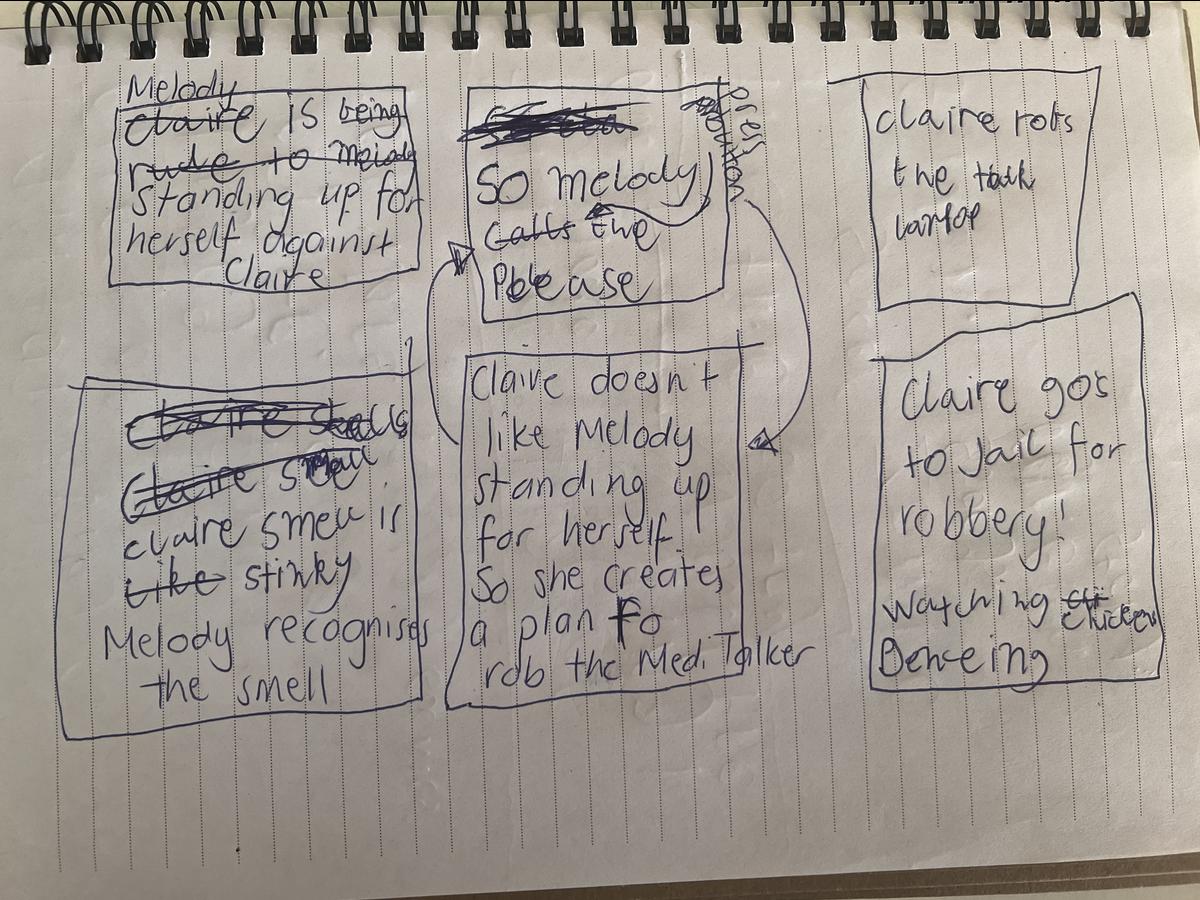 Melody
Claire is being
rude to Melody
standing up for
herself against
Claire
press
button
So melody
Calls the
Please
claire robs
the talk
laptop
Claire smells
Claire smell
claire smell is
like stinky
Melody recognises
the smell
Claire doesn't
like Melody
standing up
for herself.
So she creates
a plan to
rob the Medi Talker
Claire gos
to Jail for
robbery!
watching
chicken
Denceing